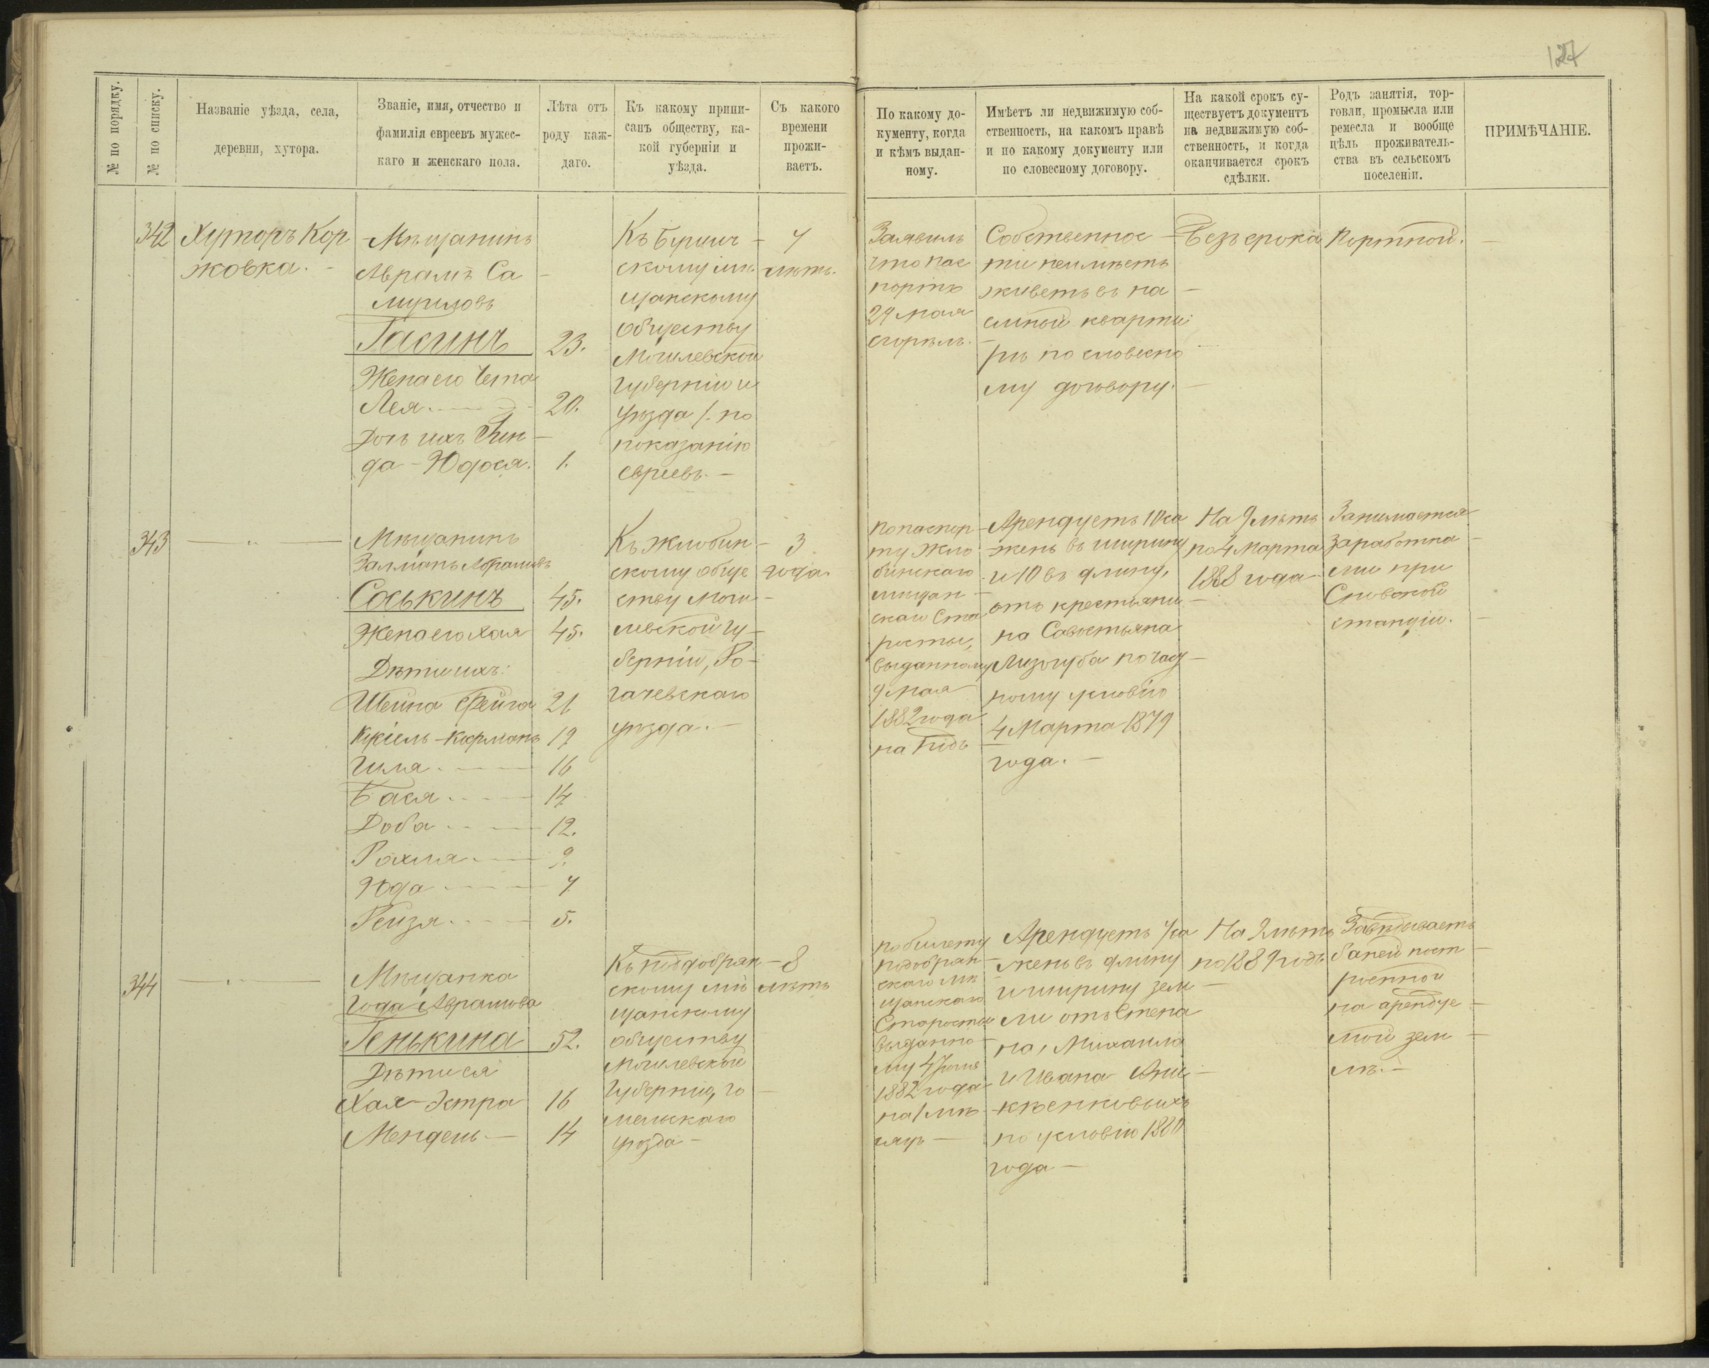 127
№ по порядку.
№ по списку.
Названіе уѣзда, села,
деревни, хутора.
Званіе, имя, отчество и
фамилія евреевъ мужес-
каго и женскаго пола.
Лѣта отъ
роду каж-
даго.
Къ какому припи-
санъ обществу, ка-
кой губерніи и
уѣзда.
Съ какого
времени
прожи-
ваетъ.
По какому до-
кументу, когда
и кѣмъ выдан-
ному.
Имѣетъ ли недвижимую соб-
ственность, на какомъ правѣ
и по какому документу или
по словесному договору.
На какой срокъ су-
ществуетъ документъ
на недвижимую соб-
ственность, и когда
оканчивается срокъ
сдѣлки.
Родъ занятія, тор-
говли, промысла или
ремесла и вообще
цѣль проживатель-
ства въ сельскомъ
поселеніи.
ПРИМѢЧАНІЕ.
342
Хуторъ Кор
жовка.
Мѣщанинъ
Аврамъ Са
муиловъ
Гасинъ 23.
Жена его
Лея 20.
Дочь ихъ Гин
да-Юдося. 1.
скому мѣ
щанскому
обществу
Могилевской
губерніи и
уѣзда /. по
показанію
евреевъ.
7
лѣтъ.
Заявилъ
что пас
портъ
29 мая
сгорѣлъ.
Собственнос
ти неимѣетъ
живетъ въ на
емной кварти
рѣ по словесно
му договору.
Безъ срока
Портной.
343
Мѣщанинъ
Залманъ Абрамовъ
Соськинъ 45.
Жена его Хая 45.
Дѣти ихъ:
Шейна Фейга 21
19
Гиля 16
Бася 14
Доба 12.
Рахля 9.
Ида 7
Рейзя 5.
Къ Жлобин
скому обще
ству Моги
левской гу
берніи, Ро
гачевскаго
уѣзда.
3
года.
По паспор
ту Жло
бинскаго
мѣщан
скаго Ста
росты,
выданному
9 мая
1882 года
на годъ
Арендуетъ 10 са
жень въ ширину
и 10 въ длину,
отъ крестьяни
на Савостьяна
Лизогуба по част
ному условію
4 Марта 1879
года.
На 9 лѣтъ
по 4 Марта
1888 года
Занимается
заработка
ми при
Сновской
станціи.
344
Мѣщанка
Года Аврамова
Генькина 52.
Дѣти ея
Хая-Эстра 16
Мендель 14
Къ Подобрян
скому мѣ
щанскому
обществу
Могилевской
губерніи, Го
мельскаго
уѣзда
8
лѣтъ
По билету
Подобрян
скаго мѣ
щанскаго
Старосты
выданно
му 4 Іюня
1882 года
на 1 мѣ
сяцъ
Арендуетъ 4 са
жень въ длину
и ширину зем
ли отъ Степа
на, Михаила
и Ивана
по условію 1880
года
На 9 лѣтъ
по 1889 годъ
Завѣдываетъ
баней пост
роенной
на арендуе
мой зем
лѣ.